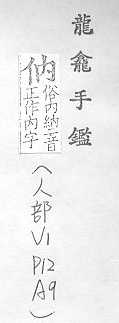 龍龕手鑑
㐻俗內納二音
正作內字
(人部V1
P12
A9)